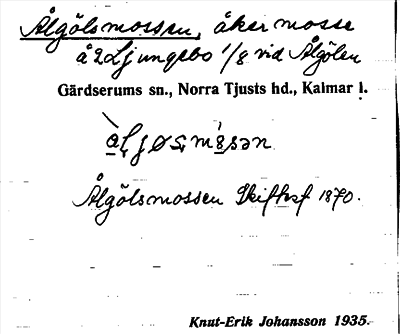 Ålgölsmossen, åkermosse
å 2 Ljungsbo 1/8 vid Ålgölen
Gärdserums sn., Norra Tjusts hd., Kalmar l.
Ålgölsmossen Skifteskf 1870.
Knut-Erik Johansson 1935.